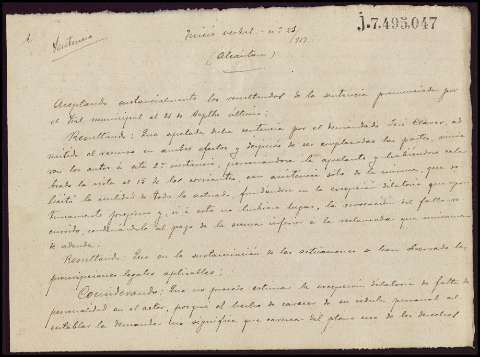 j.7.495.047
Sentencia
Juicio verbal - nº
(Alcántara)
Aceptando sustancialmente los resultandos de la sentencia pronunciada por
el Tral municipal al 24 de Septbre último;
Resultando: Que apelada dicha sentencia por el demandado José ad
mitido el recurso en ambos efectos y después de ser emplazadas las partes,
ron los autos á esta 2ª instancia, personándose la apelante y habiéndose cele
brado la vista el 15 de los corrientes con asistencia solo de la misma, que so
licitó la nulidad de todo lo actuado, fundándose en la excepción dilatoria que opor
tunamente propuso y, si á esto no hubiera lugar, la revocación del fallo re
currido, condenándole al pago de la suma inferior á la reclamada que
se adeuda.
Resultando: Que en la sustanciación de las actuaciones se han observado las
prescripciones legales aplicables;
Considerando: Que no puede estimarse la excepción dilatoria de falta de
personalidad en el actor, porque el hecho de carecer de su cédula personal al
entablar la demanda no significa que carezca del pleno uso de los derechos